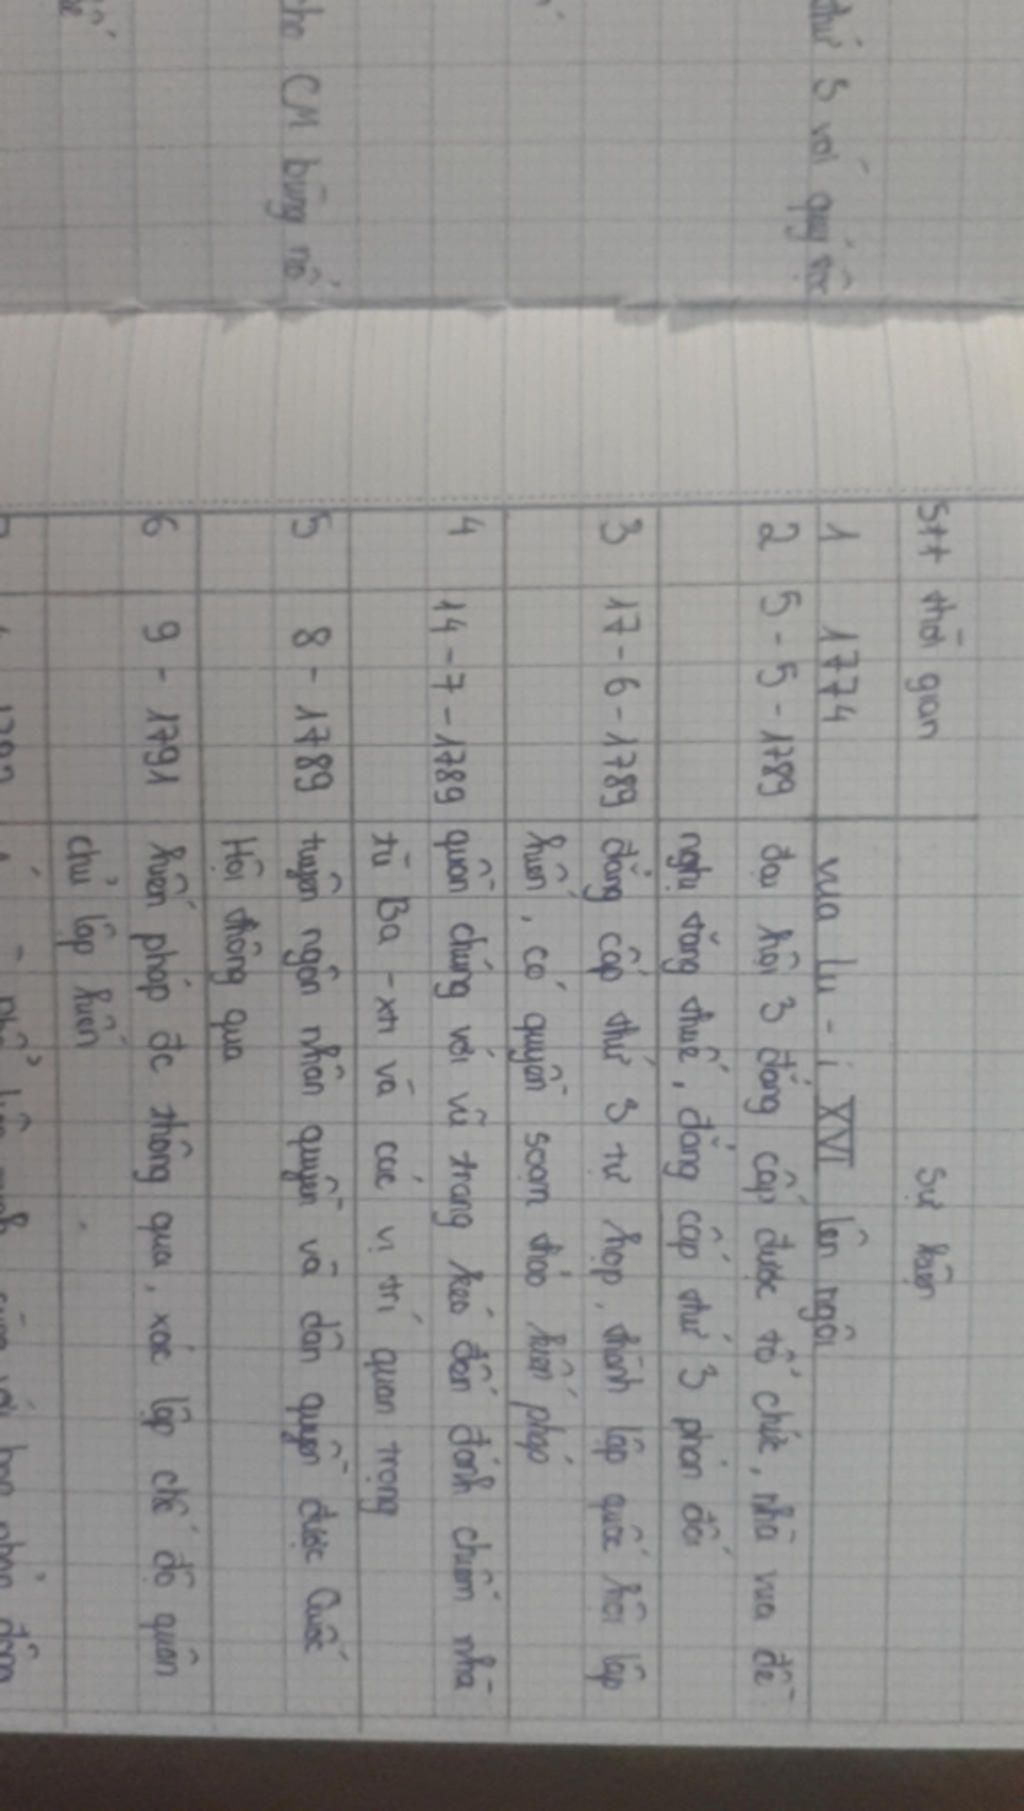 thứ 3 với quý tộc
cho CM bùng nổ
Stt thời gian Sự kiện
1 1774 vua Lu-i XVI lên ngôi
2 5-5-1789 đại hội 3 đẳng cấp được tổ chức, nhà vua đề
nghị tăng thuế, đẳng cấp thứ 3 phản đối
3 17-6-1789 đẳng cấp thứ 3 tự họp, thành lập quốc hội lập
hiến, có quyền soạn thảo hiến pháp
4 14-7-1789 quần chúng với vũ trang kéo đến đánh chiếm nhà
tù Ba-xti và các vị trí quan trọng
5 8-1789 tuyên ngôn nhân quyền và dân quyền được Quốc
Hội thông qua
6 9-1791 hiến pháp đc thông qua, xác lập chế độ quân
chủ lập hiến